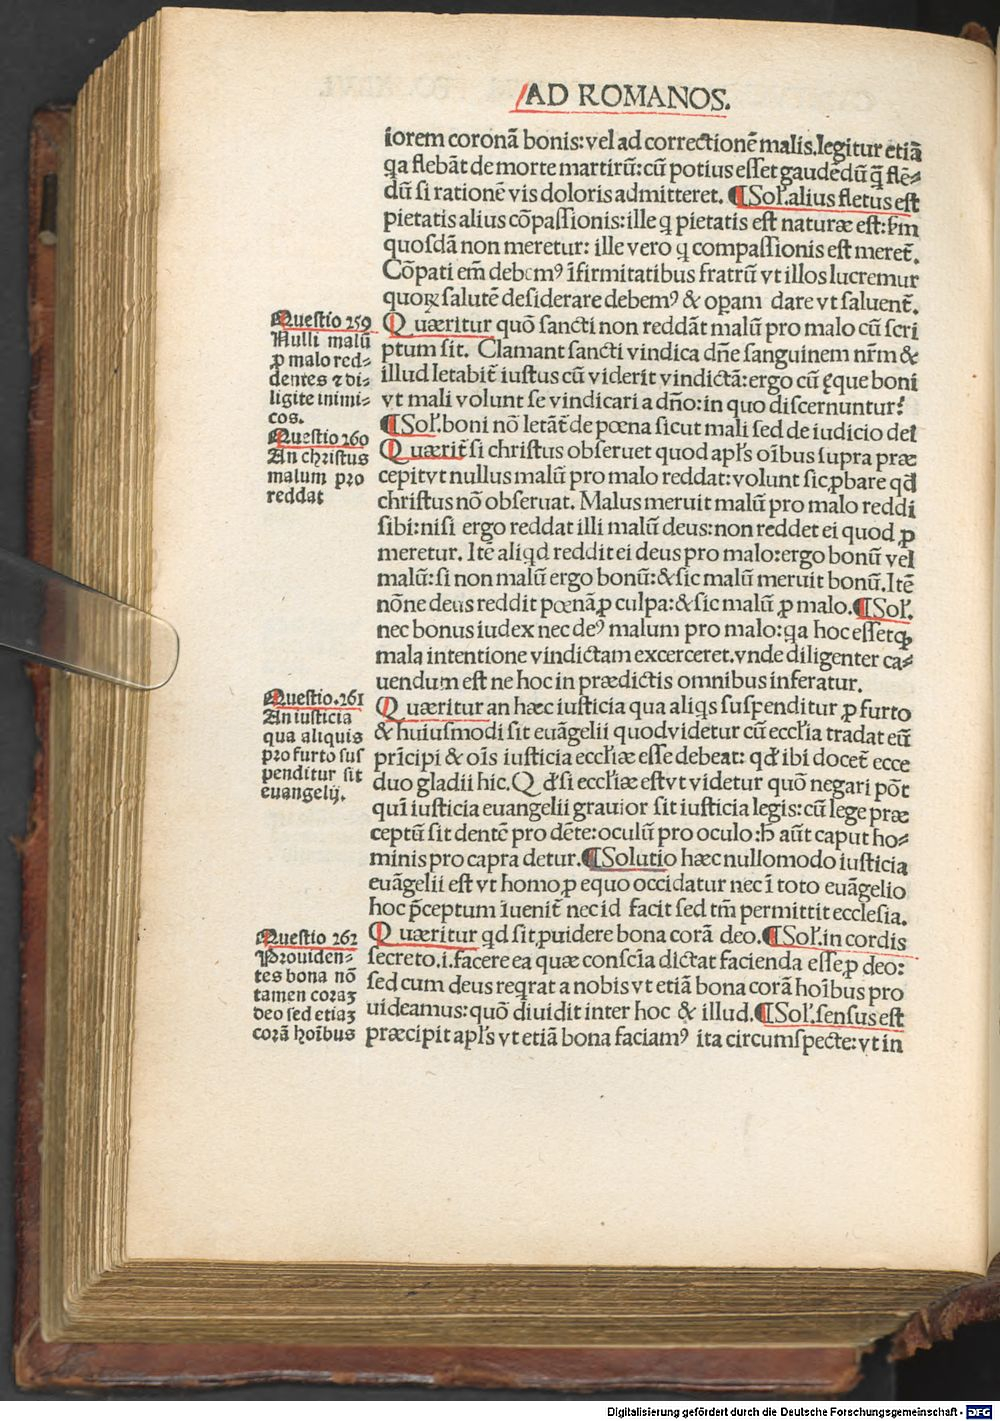 AD ROMANOS.
iorem coronā bonis: vel ad correctionē malis. legitur etiā
qa flebāt de morte martirū: cū potius eſſet gaudēdū q̄ flē⸗
dū ſi rationē vis doloris admitteret. ¶ Sol'. alius fletus eſt
pietatis alius cōpaſſionis: ille q pietatis eſt naturæ eſt: ſm
quoſdā non meretur: ille vero q compaſſionis eſt meret̄.
Cōpati em̄ debemꝰ īfirmitatibus fratrū vt illos lucremur
quoꝝ ſalutē deſiderare debemꝰ & opam dare vt ſaluent̄.
Queſtio 259
Nulli malū
ꝓ malo red⸗
dentes ⁊ di⸗
ligite inimi⸗
cos.
Quæritur quō ſancti non reddāt malū pro malo cū ſcri
ptum ſit. Clamant ſancti vindica dn̄e ſanguinem nr̄m &
illud letabit̄ iuſtus cū viderit vindictā: ergo cū ęque boni
vt mali volunt ſe vindicari a dn̄o: in quo diſcernuntur?
¶ Sol'. boni nō letāt̄ de pœna ſicut mali ſed de iudicio dei
Queſtio 260
An chriſtus
malum pro
reddat
Quærit̄ ſi chriſtus obſeruet quod apl's oībus ſupra præ
cepit vt nullus malū pro malo reddat: volunt ſic ꝓbare qd
chriſtus nō obſeruat. Malus meruit malū pro malo reddi
ſibi: niſi ergo reddat illi malū deus: non reddet ei quod ꝓ
meretur. Itē aliqd reddit ei deus pro malo: ergo bonū vel
malū: ſi non malū ergo bonū: & ſic malū meruit bonū. Itē
nōne deus reddit pœnā ꝓ culpa: & ſic malū ꝓ malo. ¶ Sol'.
nec bonus iudex nec deꝰ malum pro malo: qa hoc eſſet qꝫ
mala intentione vindictam excerceret. vnde diligenter ca⸗
uendum eſt ne hoc in prædictis omnibus inferatur.
Queſtio. 261
An iuſticia
qua aliquis
pro furto ſuſ
penditur ſit
euangelij.
Quæritur an hæc iuſticia qua aliqs ſuſpenditur ꝓ furto
& huiuſmodi ſit euāgelii quod videtur cū eccl'ia tradat eū
prīcipi & oīs iuſticia eccl'iæ eſſe debeat: qd' ibi docet̄ ecce
duo gladii hic. Qd' ſi eccl'iæ eſt vt videtur quō negari pōt
quī iuſticia euangelii grauior ſit iuſticia legis: cū lege præ
ceptū ſit dentē pro dēte: oculū pro oculo: h̄ aūt caput ho⸗
minis pro capra detur. ¶ Solutio hæc nullomodo iuſticia
euāgelii eſt vt homo ꝓ equo occidatur nec ī toto euāgelio
hoc p̄ceptum īuenit̄ nec id facit ſed tm̄ permittit eccleſia.
Queſtio 262
Prouiden⸗
tes bona nō
tamen coraꝫ
deo ſed etiaꝫ
corā hoībus
Quæritur qd ſit ꝓuidere bona corā deo. ¶ Sol'. in cordis
ſecreto. i. facere ea quæ conſcīa dictat facienda eſſe ꝓ deo:
ſed cum deus reqrat a nobis vt etiā bona corā hoībus pro
uideamus: quō diuidit inter hoc & illud. ¶ Sol'. ſenſus eſt
præcipit apl's vt etiā bona faciamꝰ ita circumſpecte: vt in
Digitalisierung gefördert durch die Deutsche Forschungsgemeinschaft - DFG